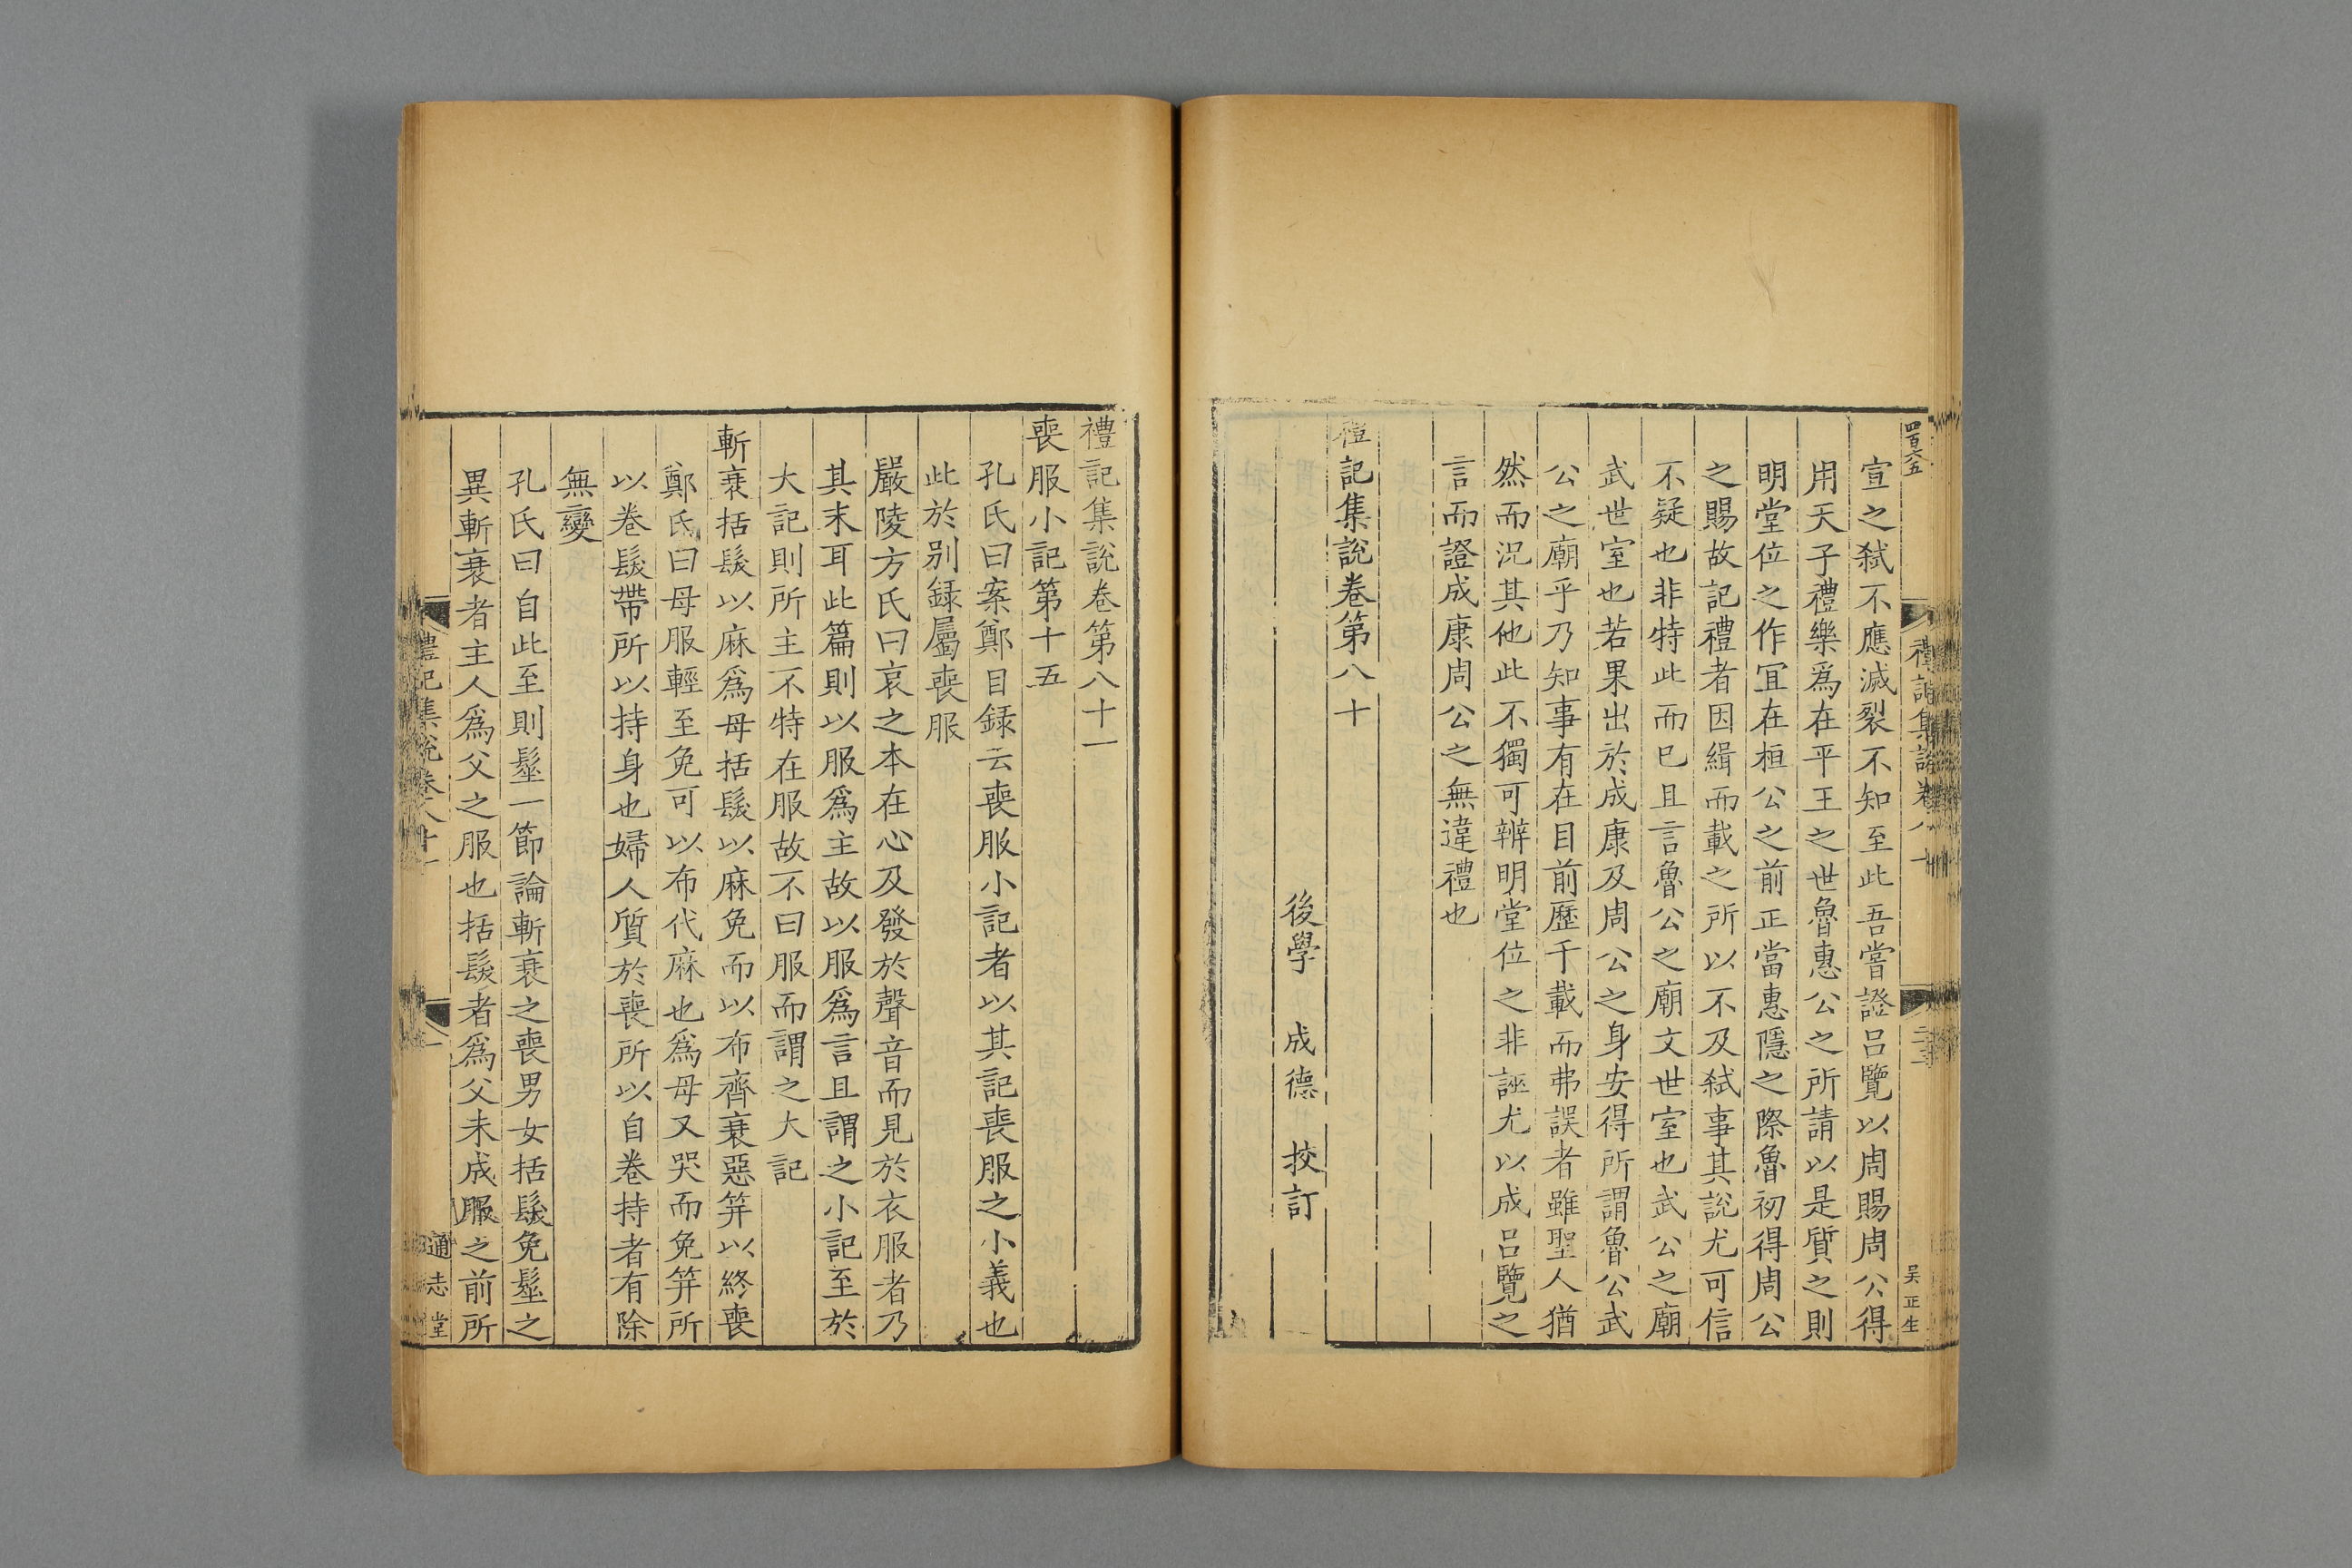 四百六五
吴正生
宣之弑不應滅裂不知至此吾嘗證吕覽以周賜周公得
用天子禮樂爲在平王之世魯惠公之所請以是質之則
明堂位之作冝在桓公之前正當惠隱之際魯初得周公
之賜故記禮者因緝而載之所以不及弑事其說尤可信
不疑也非特此而已且言魯公之廟文世室也武公之廟
武世室也若果出於成康及周公之身安得所謂魯公武
公之廟乎乃知事有在目前歷千載而弗誤者雖聖人猶
然而況其他此不獨可辨明堂位之非誣尤以成吕覽之
言而證成康周公之無違禮也
禮記集說卷第八十
後學 成德 挍訂
禮記集說卷第八十一
喪服小記第十五
孔氏曰案鄭目録云喪服小記者以其記喪服之小義也
此於别録屬喪服
嚴陵方氏曰哀之本在心及發於聲音而見於衣服者乃
其末耳此篇則以服爲主故以服爲言且謂之小記至於
大記則所主不特在服故不曰服而謂之大記
斬衰括髮以麻爲母括髮以麻免而以布齊衰惡笄以終喪
鄭氏曰母服輕至免可以布代麻也爲母又哭而免笄所
以卷髮帶所以持身也婦人質於喪所以自卷持者有除
無變
孔氏曰自此至則髽一節論斬衰之喪男女括髮免髽之
異斬衰者主人爲父之服也括髮者爲父未成服之前所
禮記集說卷八十一
一
通志堂